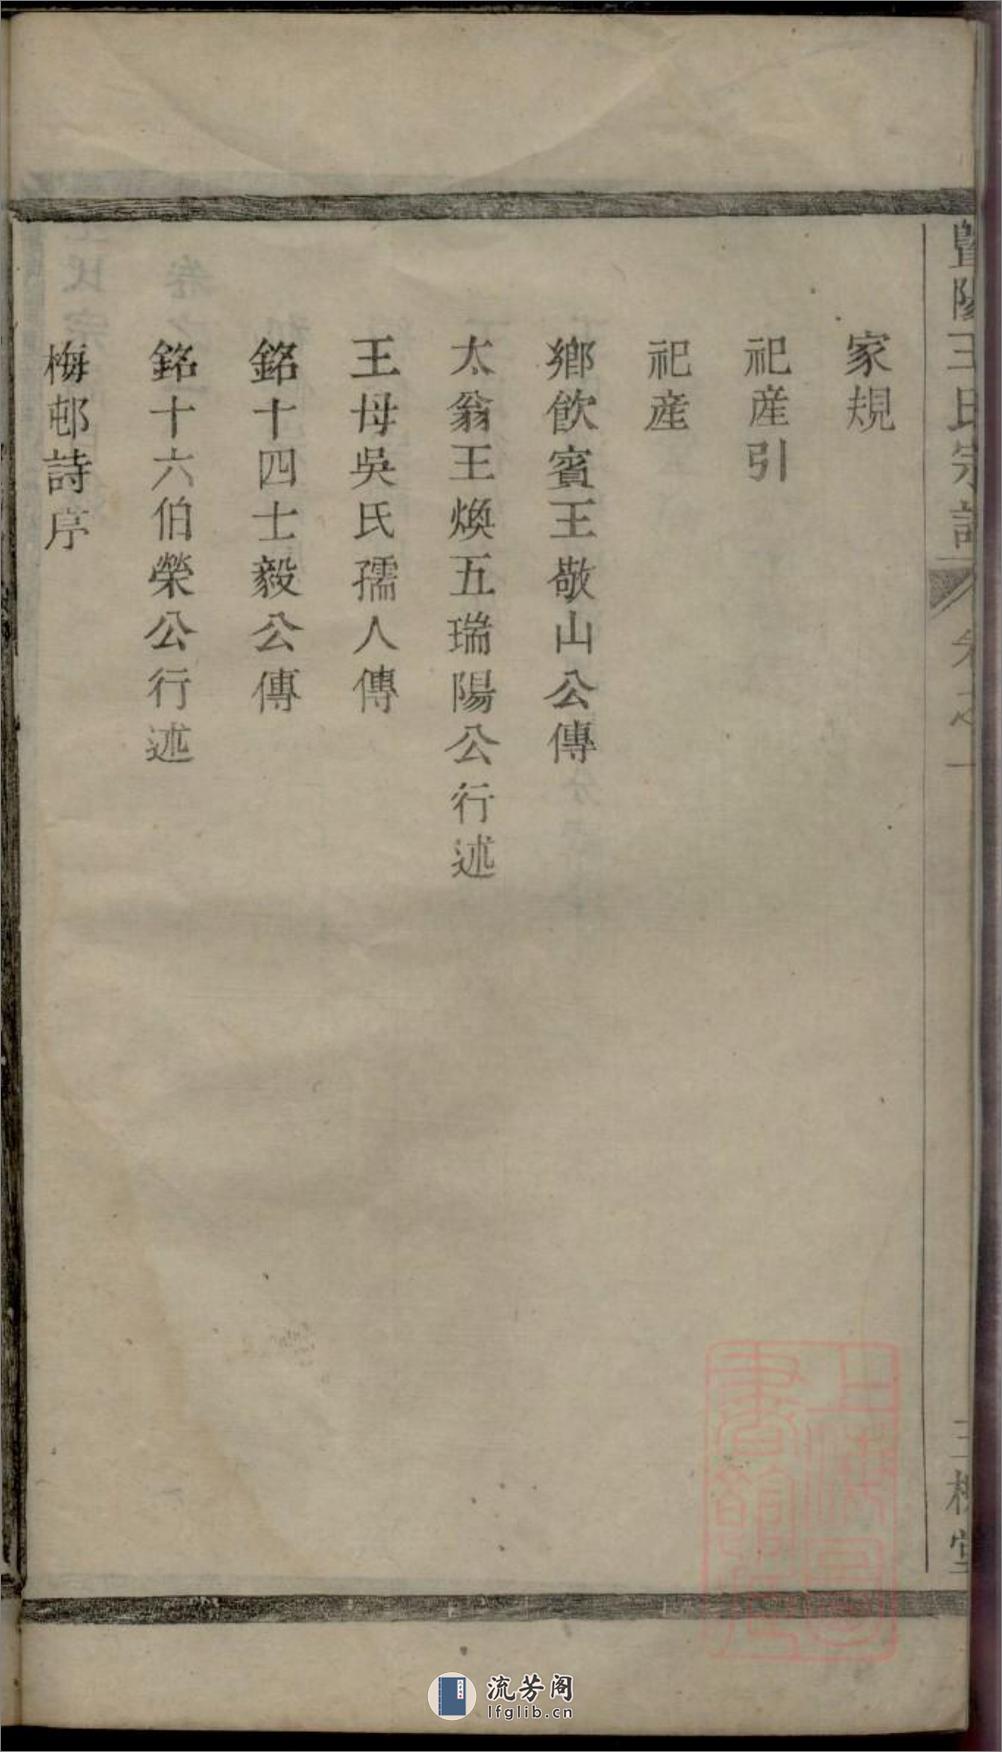 暨陽王氏宗譜
卷之一
三槐堂
家規
祀産引
祀産
鄉飲賓王敬山公傳
太翁王煥五瑞陽公行述
王母吳氏孺人傳
銘十四士毅公傳
銘十六伯榮公行述
梅邨詩序
上海圖書館藏
流芳阁
lfglib.cn